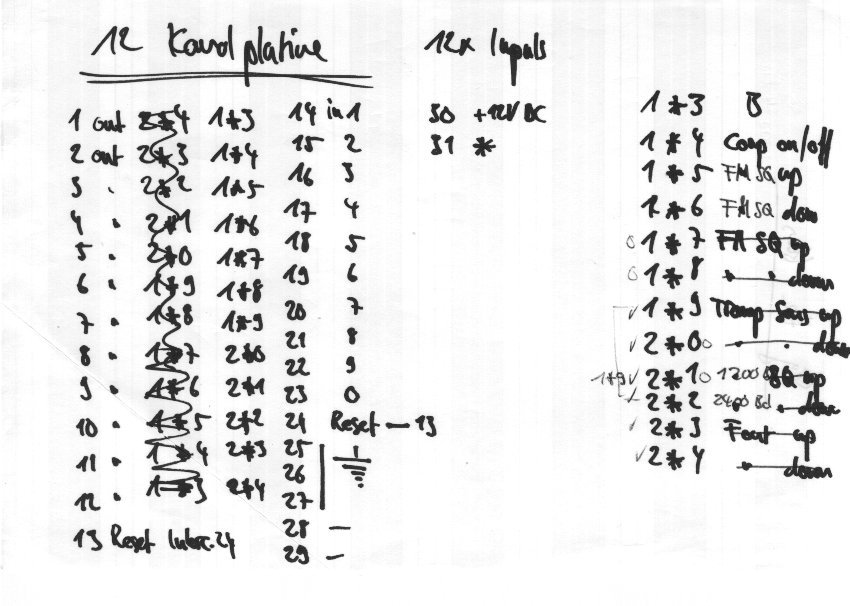 12 Kanal platine
1 out 2*4 1*3
2 out 2*3 1*4
3 " 2*2 1*5
4 " 2*1 1*6
5 " 2*0 1*7
6 " 1*9 1*8
7 " 1*8 1*9
8 " 1*7 2*0
9 " 1*6 2*1
10 " 1*5 2*2
11 " 1*4 2*3
12 " 1*3 2*4
13 Reset 24
14 in 1
15 2
16 3
17 4
18 5
19 6
20 7
21 8
22 9
23 0
24 Reset — 13
25
26
27
28 —
29 —
12x Impuls
30 +12V DC
31 *
1*3 B
1*4 on/off
1*5 FM SQ up
1*6 FM SQ down
1*7 FM SQ up
1*8 " " down
1*9 up
2*0 " " down
1*9 2*1 1200 SQ up
2*2 2400 Bd " down
2*3 up
2*4 " down